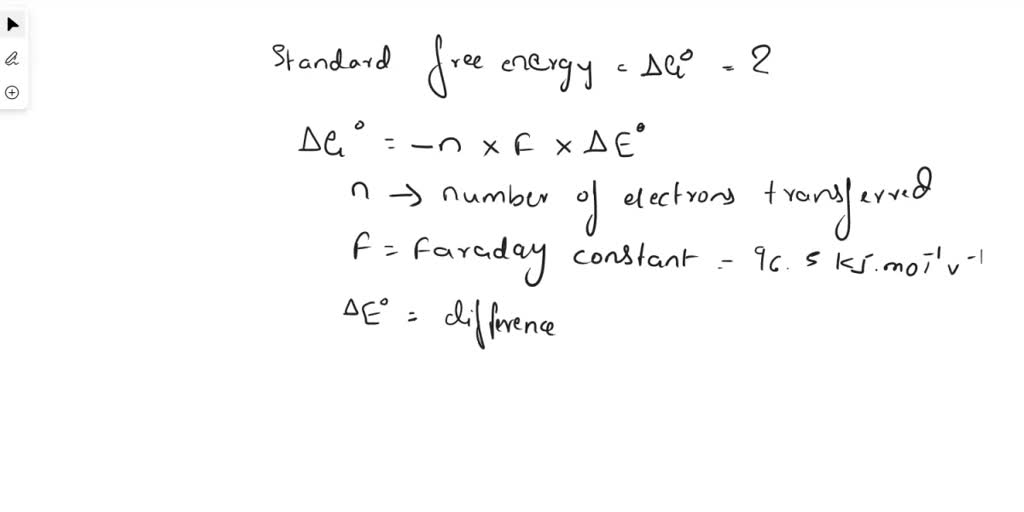 Standard free energy = ΔG° = ?
ΔG° = -n × F × ΔE°
n → number of electrons transferred
F = Faraday constant = 96.5 kJ.mol⁻¹ v⁻¹
ΔE° = difference